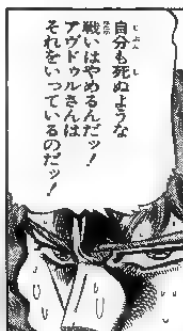 自分も死ぬような
戦いはやめるんだッ！
アヴドゥルさんは
それをいっているのだッ！